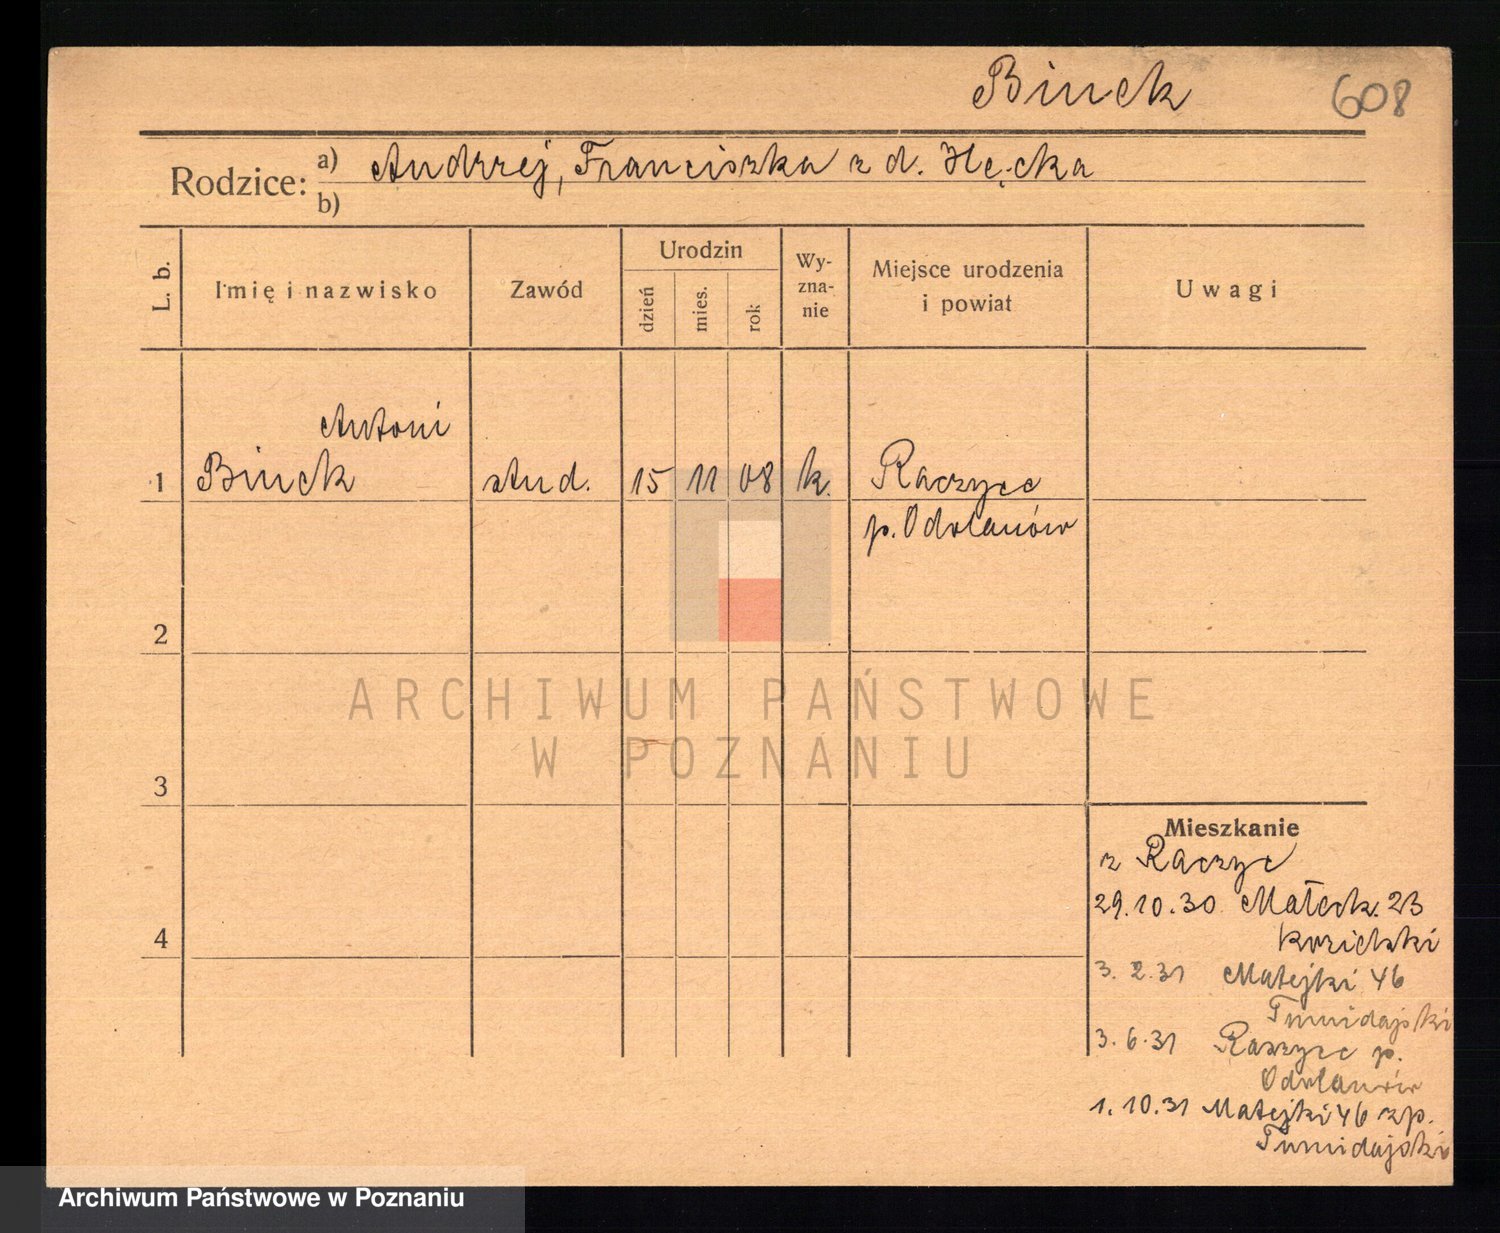 Binek 608
Rodzice: a) Andrzej, Franciszka z d.
b)
L. b. Imię i nazwisko Zawód Urodzin dzień mies. rok Wy-zna-nie Miejsce urodzenia i powiat Uwagi
Antoni
1 Binek stud. 15 11 08 k. Raczyce
p. Odolanów
2
ARCHIWUM PAŃSTWOWE
W POZNANIU
3
Mieszkanie
z Raczyc
29.10.30 Małeck. 23
4
Kozielski
3. 2. 31 Matejki 46
Tumidajski
3. 6. 31 Raczyce p.
Odolanów
1. 10. 31 Matejki 46 zp.
Tumidajski
Archiwum Państwowe w Poznaniu